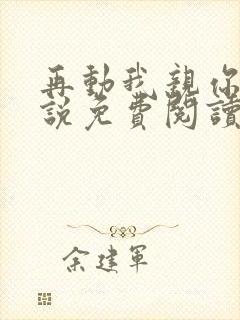 再動我親你
說免費閱讀
余建軍